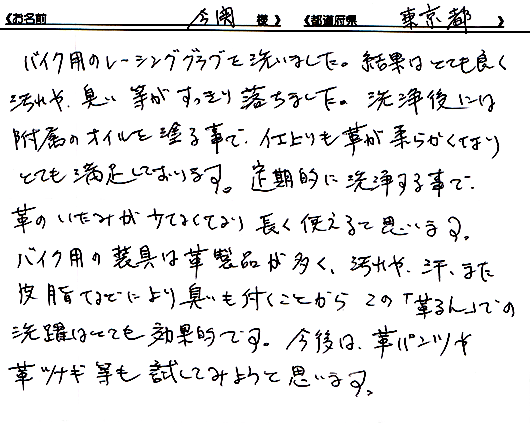 《お名前 今関 様》 《都道府県 東京都 》
バイク用のレーシンググラブを洗いました。結果はとても良く
汚れや、臭い等がすっきり落ちました。洗浄後には
附属のオイルを塗る事で、仕上りも革が柔らかくなり
とても満足しております。定期的に洗浄する事で、
革のいたみが少なくなり長く使えると思います。
バイク用の装具は革製品が多く、汚れや、汗、また
皮脂などにより臭いも付くことからこの「革るん」での
洗躍はとても効果的です。今後は、革パンツや
革ツナギ等も試してみようと思います。